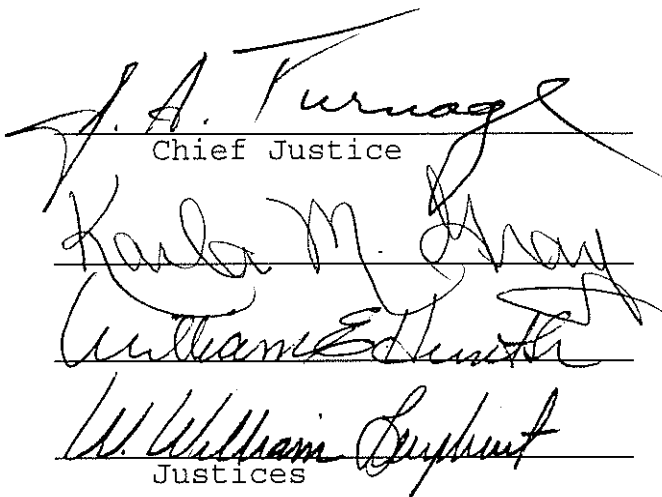 J. A. Turnage
Chief Justice
Karla M. Gray
William E Hunt Sr
W. William Leaphart
Justices